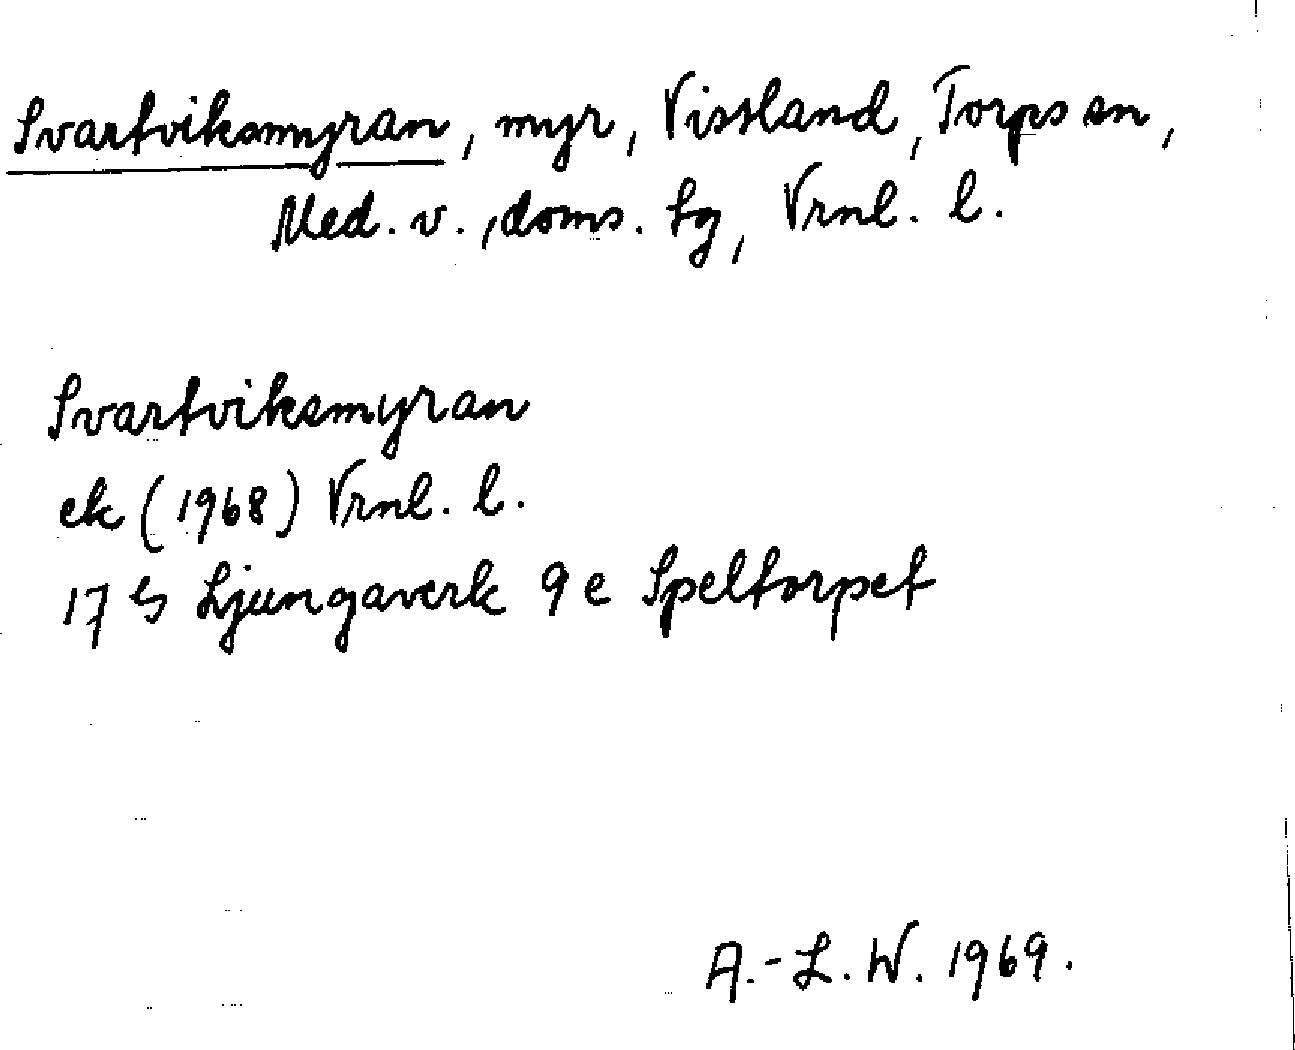 Svartviksmyran, myr, Vissland, Torps sn,
Med. v., doms. tg, Vrnl. l.
Svartviksmyran
ek (1968) Vrnl. l.
17 G Ljungaverk 9 e Speltorpet
A.-L. W. 1969.